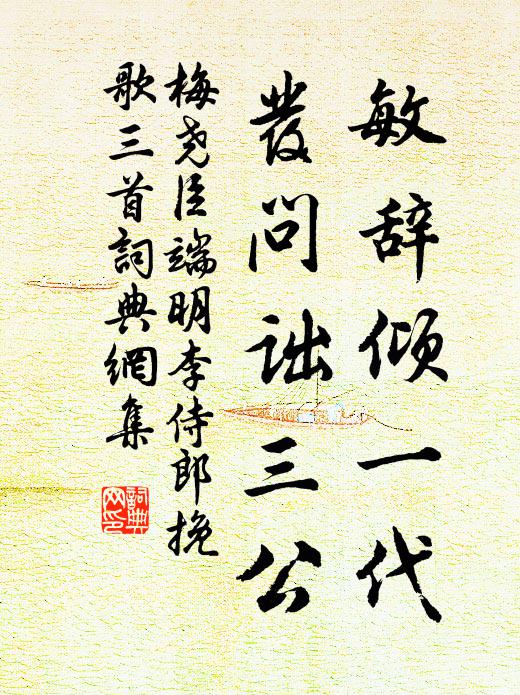 敏辞倾一代
發问诎三公
梅尧臣端明李侍郎挽
歌三首詞典網集
詞典
网印